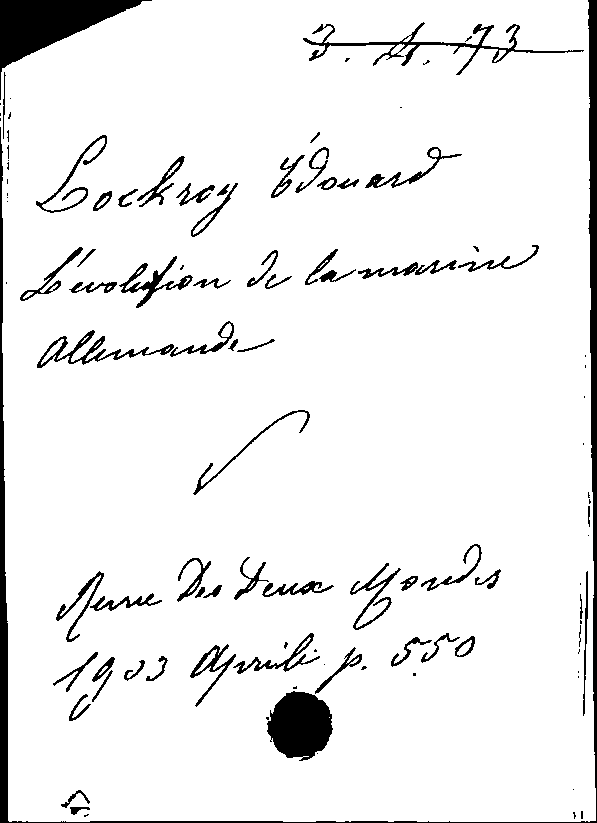 3. 4. 73
Lockroy Édouard
L'évolution de la marine
Allemande
Revue Des Deux Mondes
1903 Aprile p. 550